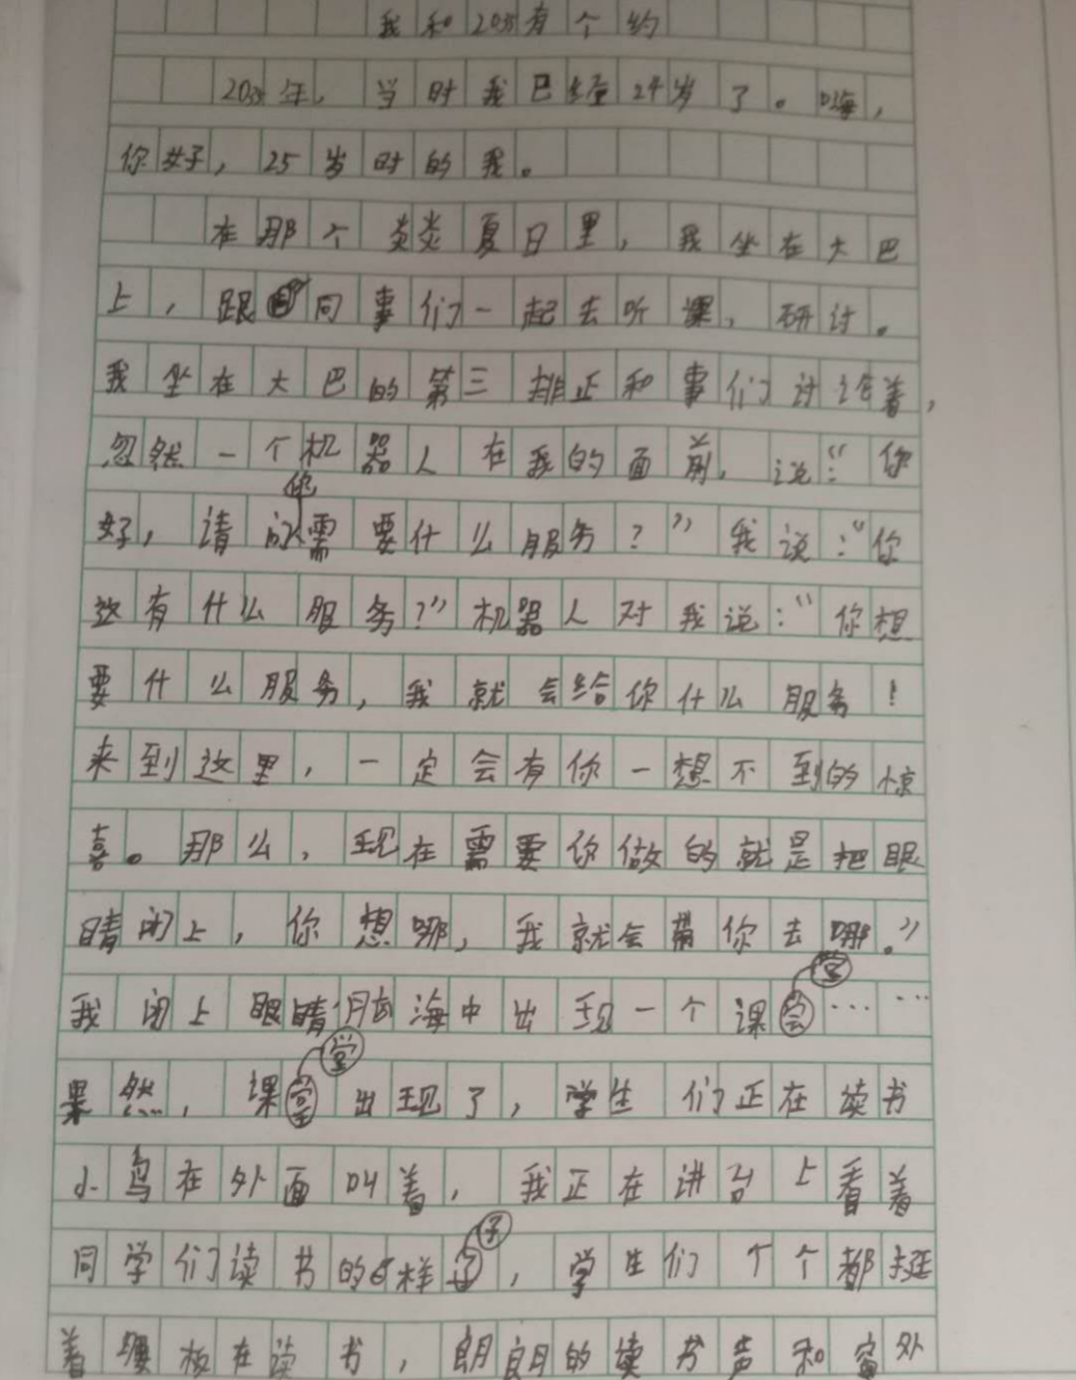 我和2035有个约
2035年，当时我已经24岁了。嗨，
你好，25岁时的我。
在那个炎炎夏日里，我坐在大巴
上，跟同事们一起去听课，研讨。
我坐在大巴的第三排正和事们讨论着，
忽然一个机器人在我的面前，说：“你
好，请问你需要什么服务？”我说：“你
这有什么服务？”机器人对我说：“你想
要什么服务，我就会给你什么服务！
来到这里，一定会有你一想不到的惊
喜。那么，现在需要你做的就是把眼
睛闭上，你想哪，我就会带你去哪。”
我闭上眼睛，脑海中出现一个课堂……
果然，课堂出现了，学生们正在读书
小鸟在外面叫着，我正在讲台上看着
同学们读书的样子，学生们个个都挺
着腰板在读书，朗朗的读书声和窗外